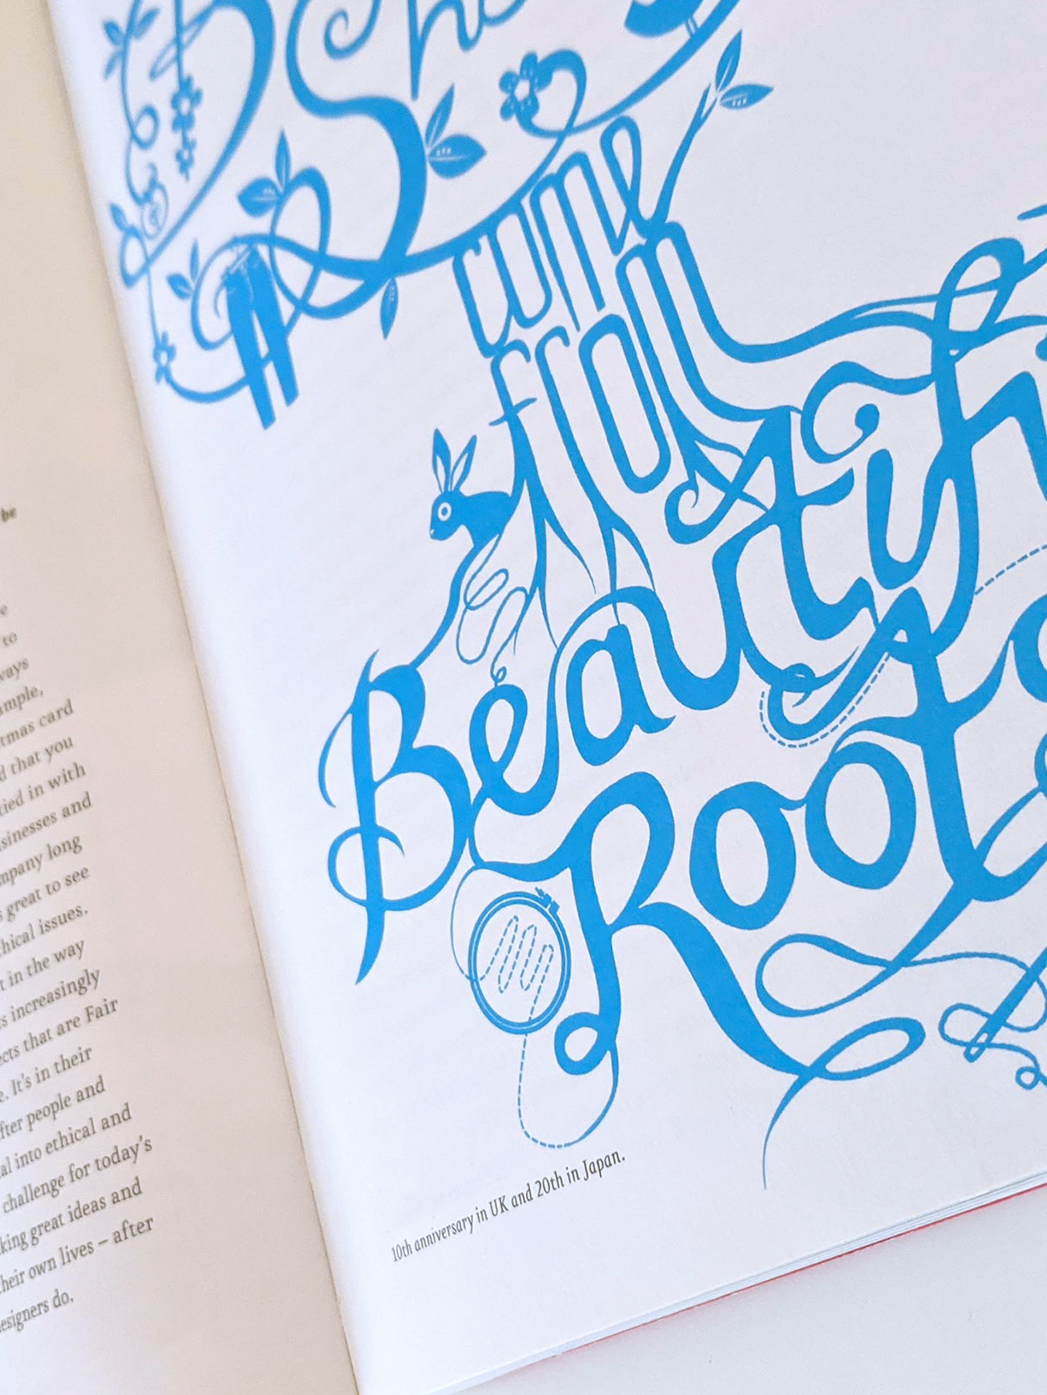 be
e
to
ways
ample,
tmas card
d that you
tied in with
sinesses and
mpany long
s great to see
hical issues.
t in the way
s increasingly
ects that are Fair
e. It's in their
fter people and
al into ethical and
challenge for today's
king great ideas and
heir own lives – after
esigners do.
Sho
come
from
Beautiful
Roots
10th anniversary in UK and 20th in Japan.